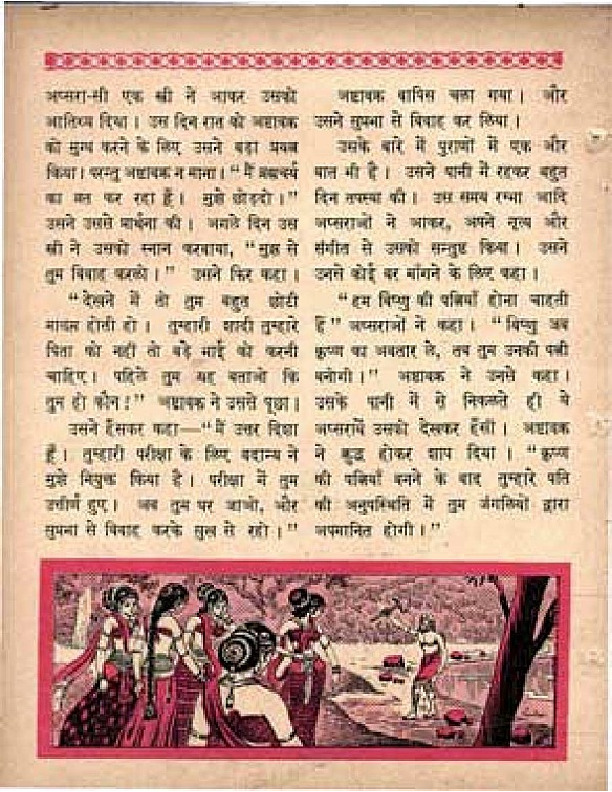 अप्सरा-सी एक स्त्री ने आकर उसको
आतिथ्य दिया। उस दिन रात को अष्टावक्र
को मुग्ध करने के लिए उसने बड़ा प्रयत्न
किया। परन्तु अष्टावक्र न माना। "मैं ब्रह्मचर्य
का व्रत कर रहा हूँ। मुझे छोड़दो।"
उसने उससे प्रार्थना की। अगले दिन उस
स्त्री ने उसको स्नान करवाया, "मुझ से
तुम विवाह करलो।" उसने फिर कहा।
"देखने में तो तुम बहुत छोटी
मालूम होती हो। तुम्हारी शादी तुम्हारे
पिता को नहीं तो बड़े भाई को करनी
चाहिए। पहिले तुम यह बताओ कि
तुम हो कौन!" अष्टावक्र ने उससे पूछा।
उसने हँसकर कहा—"मैं उत्तर दिशा
हूँ। तुम्हारी परीक्षा के लिए वदान्य ने
मुझे नियुक्त किया है। परीक्षा में तुम
उत्तीर्ण हुए। अब तुम घर जाओ, और
सुप्रभा से विवाह करके सुख से रहो।"
अष्टावक्र वापिस चला गया। और
उसने सुप्रभा से विवाह कर लिया।
उसके बारे में पुराणों में एक और
बात भी है। उसने पानी में रहकर बहुत
दिन तपस्या की। उस समय रम्भा आदि
अप्सराओं ने आकर, अपने नृत्य और
संगीत से उसको सन्तुष्ट किया। उसने
उनसे कोई वर माँगने के लिए कहा।
"हम विष्णु की पत्नियाँ होना चाहती
हैं" अप्सराओं ने कहा। "विष्णु जब
कृष्ण का अवतार ले, तब तुम उनकी पत्नी
बनोगी।" अष्टावक्र ने उनसे कहा।
उसके पानी में से निकलते ही वे
अप्सरायें उसको देखकर हँसीं। अष्टावक्र
ने क्रुद्ध होकर शाप दिया। "कृष्ण
की पत्नियाँ बनने के बाद तुम्हारे पति
की अनुपस्थिति में तुम जंगलियों द्वारा
अपमानित होगी।"